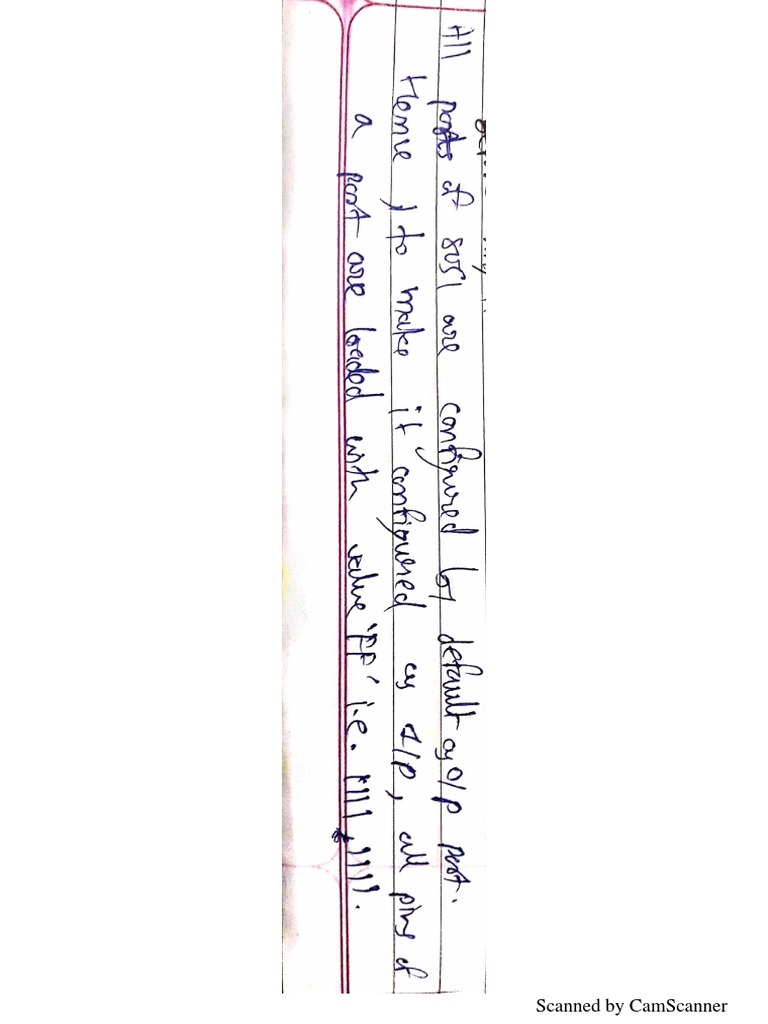 All ports of 8051 are configured by default as O/P port.
Hence, to make it configured as I/P, all pins of
a port are loaded with value 'FF' i.e. 1111,1111.
Scanned by CamScanner